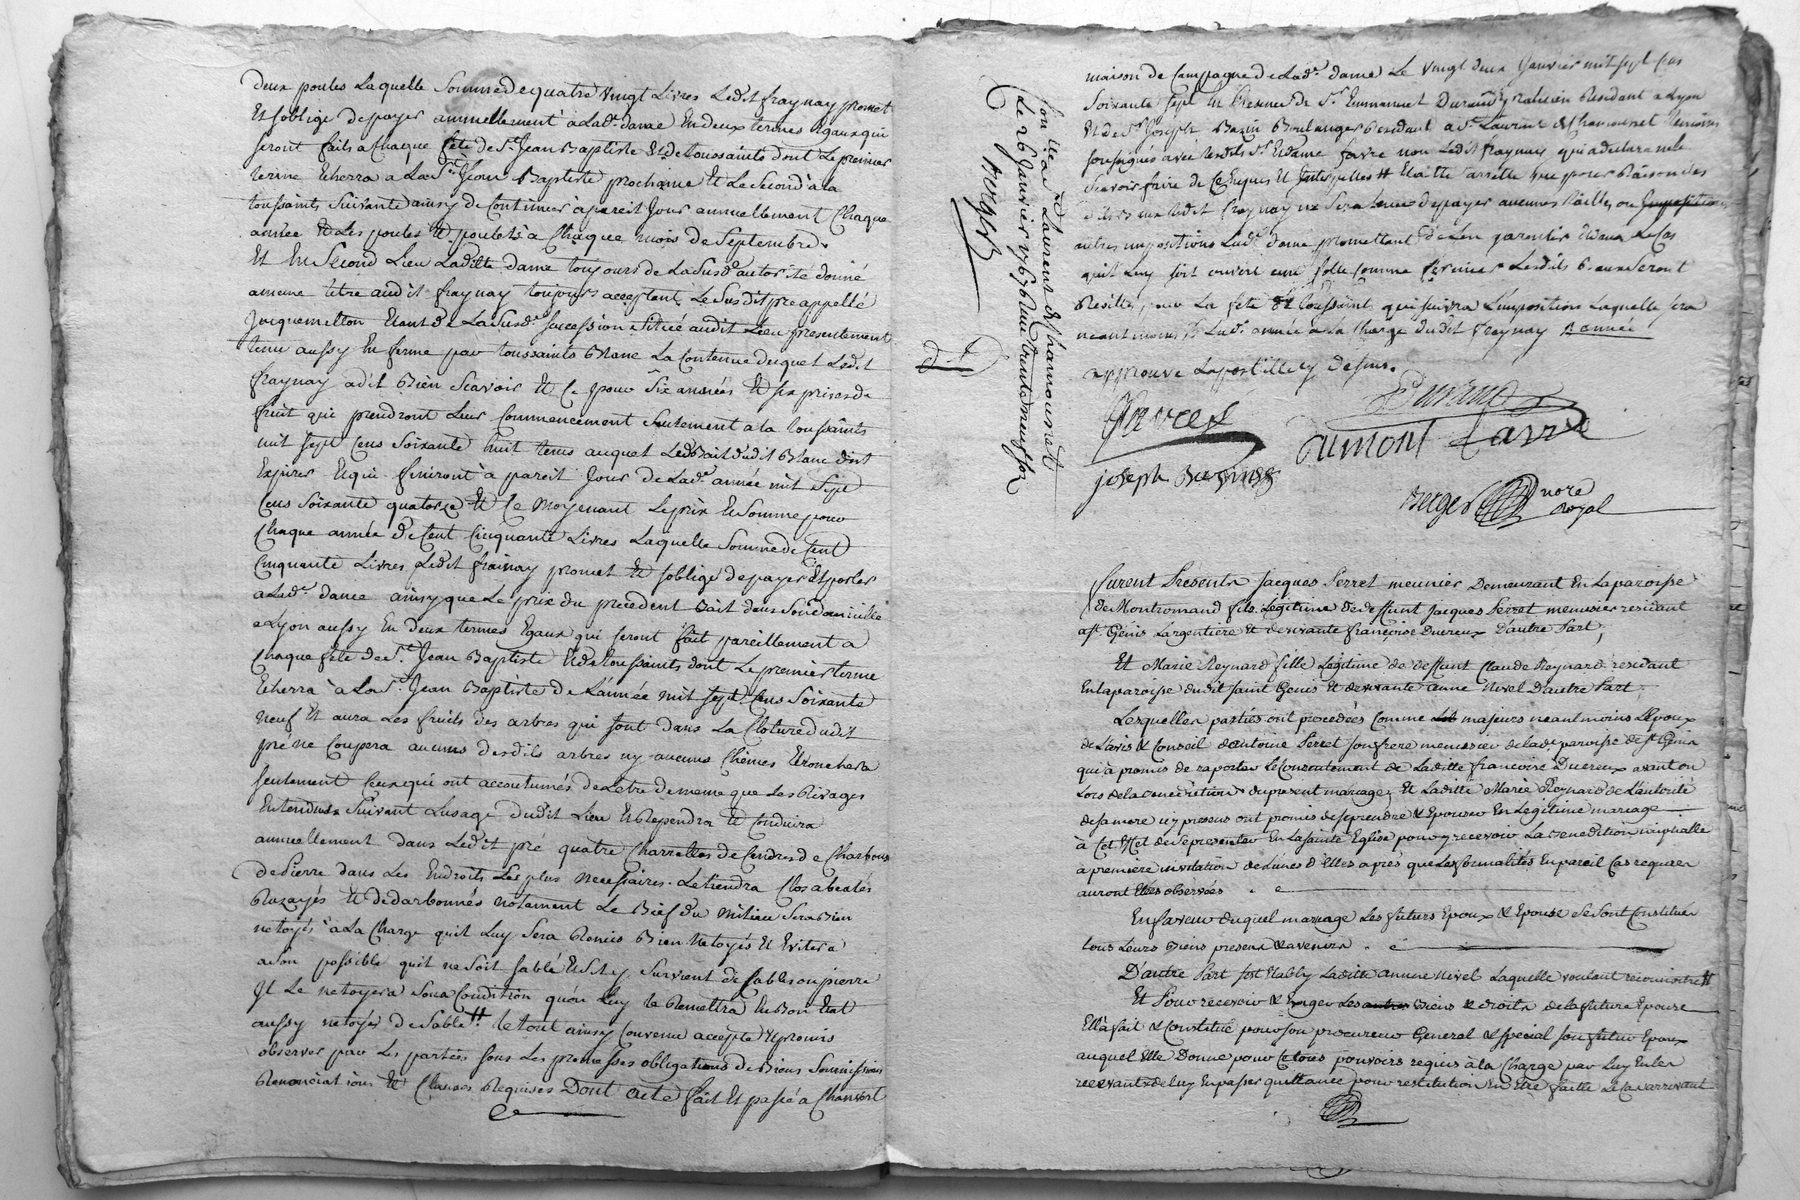 deux poules Laquelle Somme de quatre vingt Livres Ledit fraynay promet
Et s'oblige de payer annuellement a Lad.e dame En deux termes Egaux qui
seront faits a Chaque fete de S.t Jean Baptiste Et de toussaints dont Le premier
terme Echerra a La S.t Jean Baptiste prochaine Et Le Second a la
toussaints Suivante ainsy de Continuer à pareil Jour annuellement Chaque
année Et Les poules Et poulets a Chaque mois de Septembre
Et En Second Lieu Laditte dame toujours de La Susd.e autorité donné
a meme titre audit fraynay toujours acceptant Le Susdit pré appellé
Jacquemetton Etant de La Susd.e Succession Situé audit Lieu presentement
tenu aussy En ferme par toussaints Blanc La Contenue duquel Ledit
fraynay a dit Bien Scavoir Et Ce pour Six années Et six prises de
fruit qui prendront Leur Commencement Seulement a la toussaints
mil Sept Cens Soixante huit tems auquel Led. Bail dudit Blanc doit
Expirer Et qui finiront à pareil Jour de Lad.e année mil Sept
Cens Soixante quatorze Et Ce Moyenant Le prix Et Somme pour
Chaque année de Cent Cinquante Livres Laquelle Somme de Cent
Cinquante Livres Ledit frainay promet Et s'oblige de payer Et porter
a Lad.e dame ainsy que Le prix du precedent Bail dans Son domicille
a Lyon aussy En deux termes Egaux qui seront fait pareillement a
Chaque fete de S.t Jean Baptiste Et de toussaints dont Le premier terme
Echerra à La S.t Jean Baptiste de L'année mil Sept Cens Soixante
neuf Et aura Les fruits des arbres qui sont dans La Cloture dudit
pré ne Coupera aucuns desdits arbres ny aucuns Chenes Etronchera
seulement Ceux qui ont accoutumés de L'etre de meme que Les Rivages
Entendus Suivant L'usage dudit Lieu Et Rependra Et Conduira
annuellement dans Ledit pré quatre Charrettes de Cendres de Charbons
de Pierre dans Les Endroits Les plus necessaires. Le tiendra Clos
Razayés Et dedarbonnés notament Le Bief du Milieu Sera Bien
netoyés à La Charge qu'il Luy Sera Remis Bien Netoyés Et Evitera
a Son possible qu'il ne Soit Sablé Et S'il y Survient de sable ou pierre
Il Le netoyera Sous Condition qu'on Luy Le Remettra En Bon Etat
aussy netoyés de Sable # Le tout ainsy Convenu accepté Et promis
observer par Les parties Sous Les promesses obligations de Biens Soumissions
Renonciations Et Clauses Requises Dont acte fait Et passé à Chanvort
Con.lle a S.t Laurent de Chamousset
Le 26 Janvier 1767 Reçu trente neuf sols
Berger
maison de Campagne de Lad.e dame Le vingt deux Janvier mil Sept Cens
Soixante Sept En Presence de S.r Emmanuel Durand Praticien Residant a Lyon
Et de S.r Joseph Bazin Boulanger Residant a S.t Laurent de Chamousset temoins
soussignés avec Lesdits S.r Et dame favre non Ledit fraynay qui a declaré ne le
Scavoir faire de Ce Enquis Et Interpellés #
Ledit fraynay ne Sera tenu de payer aucunes tailles ou Impositions
autres impositions Lad.e dame promettant de L'en garentir
Resiliés pour La fete de toussaint qui suivra L'imposition Laquelle sera
neantmoins Lad.e année a la Charge dudit fraynay
approuve L'apostille cy dessus.
Durand
favre
Dumont favre
joseph Bazin
Berger no.re royal
Furent Presents Jacques Perret meunier Demeurant En La paroisse
de Montromand fils Legitime de deffunt Jacques Perret menusier residant
a S.t Genis Largentiere Et de vivante françoise Duereux D'autre Part,
Et Marie Reynard fille Legitime de deffunt Claude Reynard residant
En la paroisse dudit Saint Genis Et de vivante anne Nivel D'autre Part
Lesquelles parties ont procedées Comme majeurs neantmoins L'Epoux
de L'avis & Conseil d'antoine Perret Son frere menusier de lad.e paroisse de S.t Genis
qui à promis de raporter Le Consentement de Laditte françoise Duereux avant ou
Lors de la benediction du present mariage, Et Laditte Marie Reynard de L'autorité
de sa mere icy presens ont promis de se prendre & Epouser En Legitime mariage
à Cet Effet de se presenter En La Sainte Eglise pour y recevoir La benediction nuptialle
a premiere invitation de L'un d'Elles après que Les formalités En pareil Cas requises
auront Etés observées
En faveur duquel mariage Les futurs Epoux & Epouse Se sont Constitués
tous Leurs Biens presens & avenirs
D'autre Part fut Etably Laditte anne Nivel Laquelle voulant reconnoitre #
Et Pour recevoir & Exiger Les autres Biens & droits de la future Epouse
Ell'a fait & Constitué pour son procureur General & special son futur Epoux
auquel Elle Donne pour Ce tous pouvoirs requis à la Charge par Luy En les
recevants de luy En passer quittance pour restitution En Etre faitte Le Cas arrivant